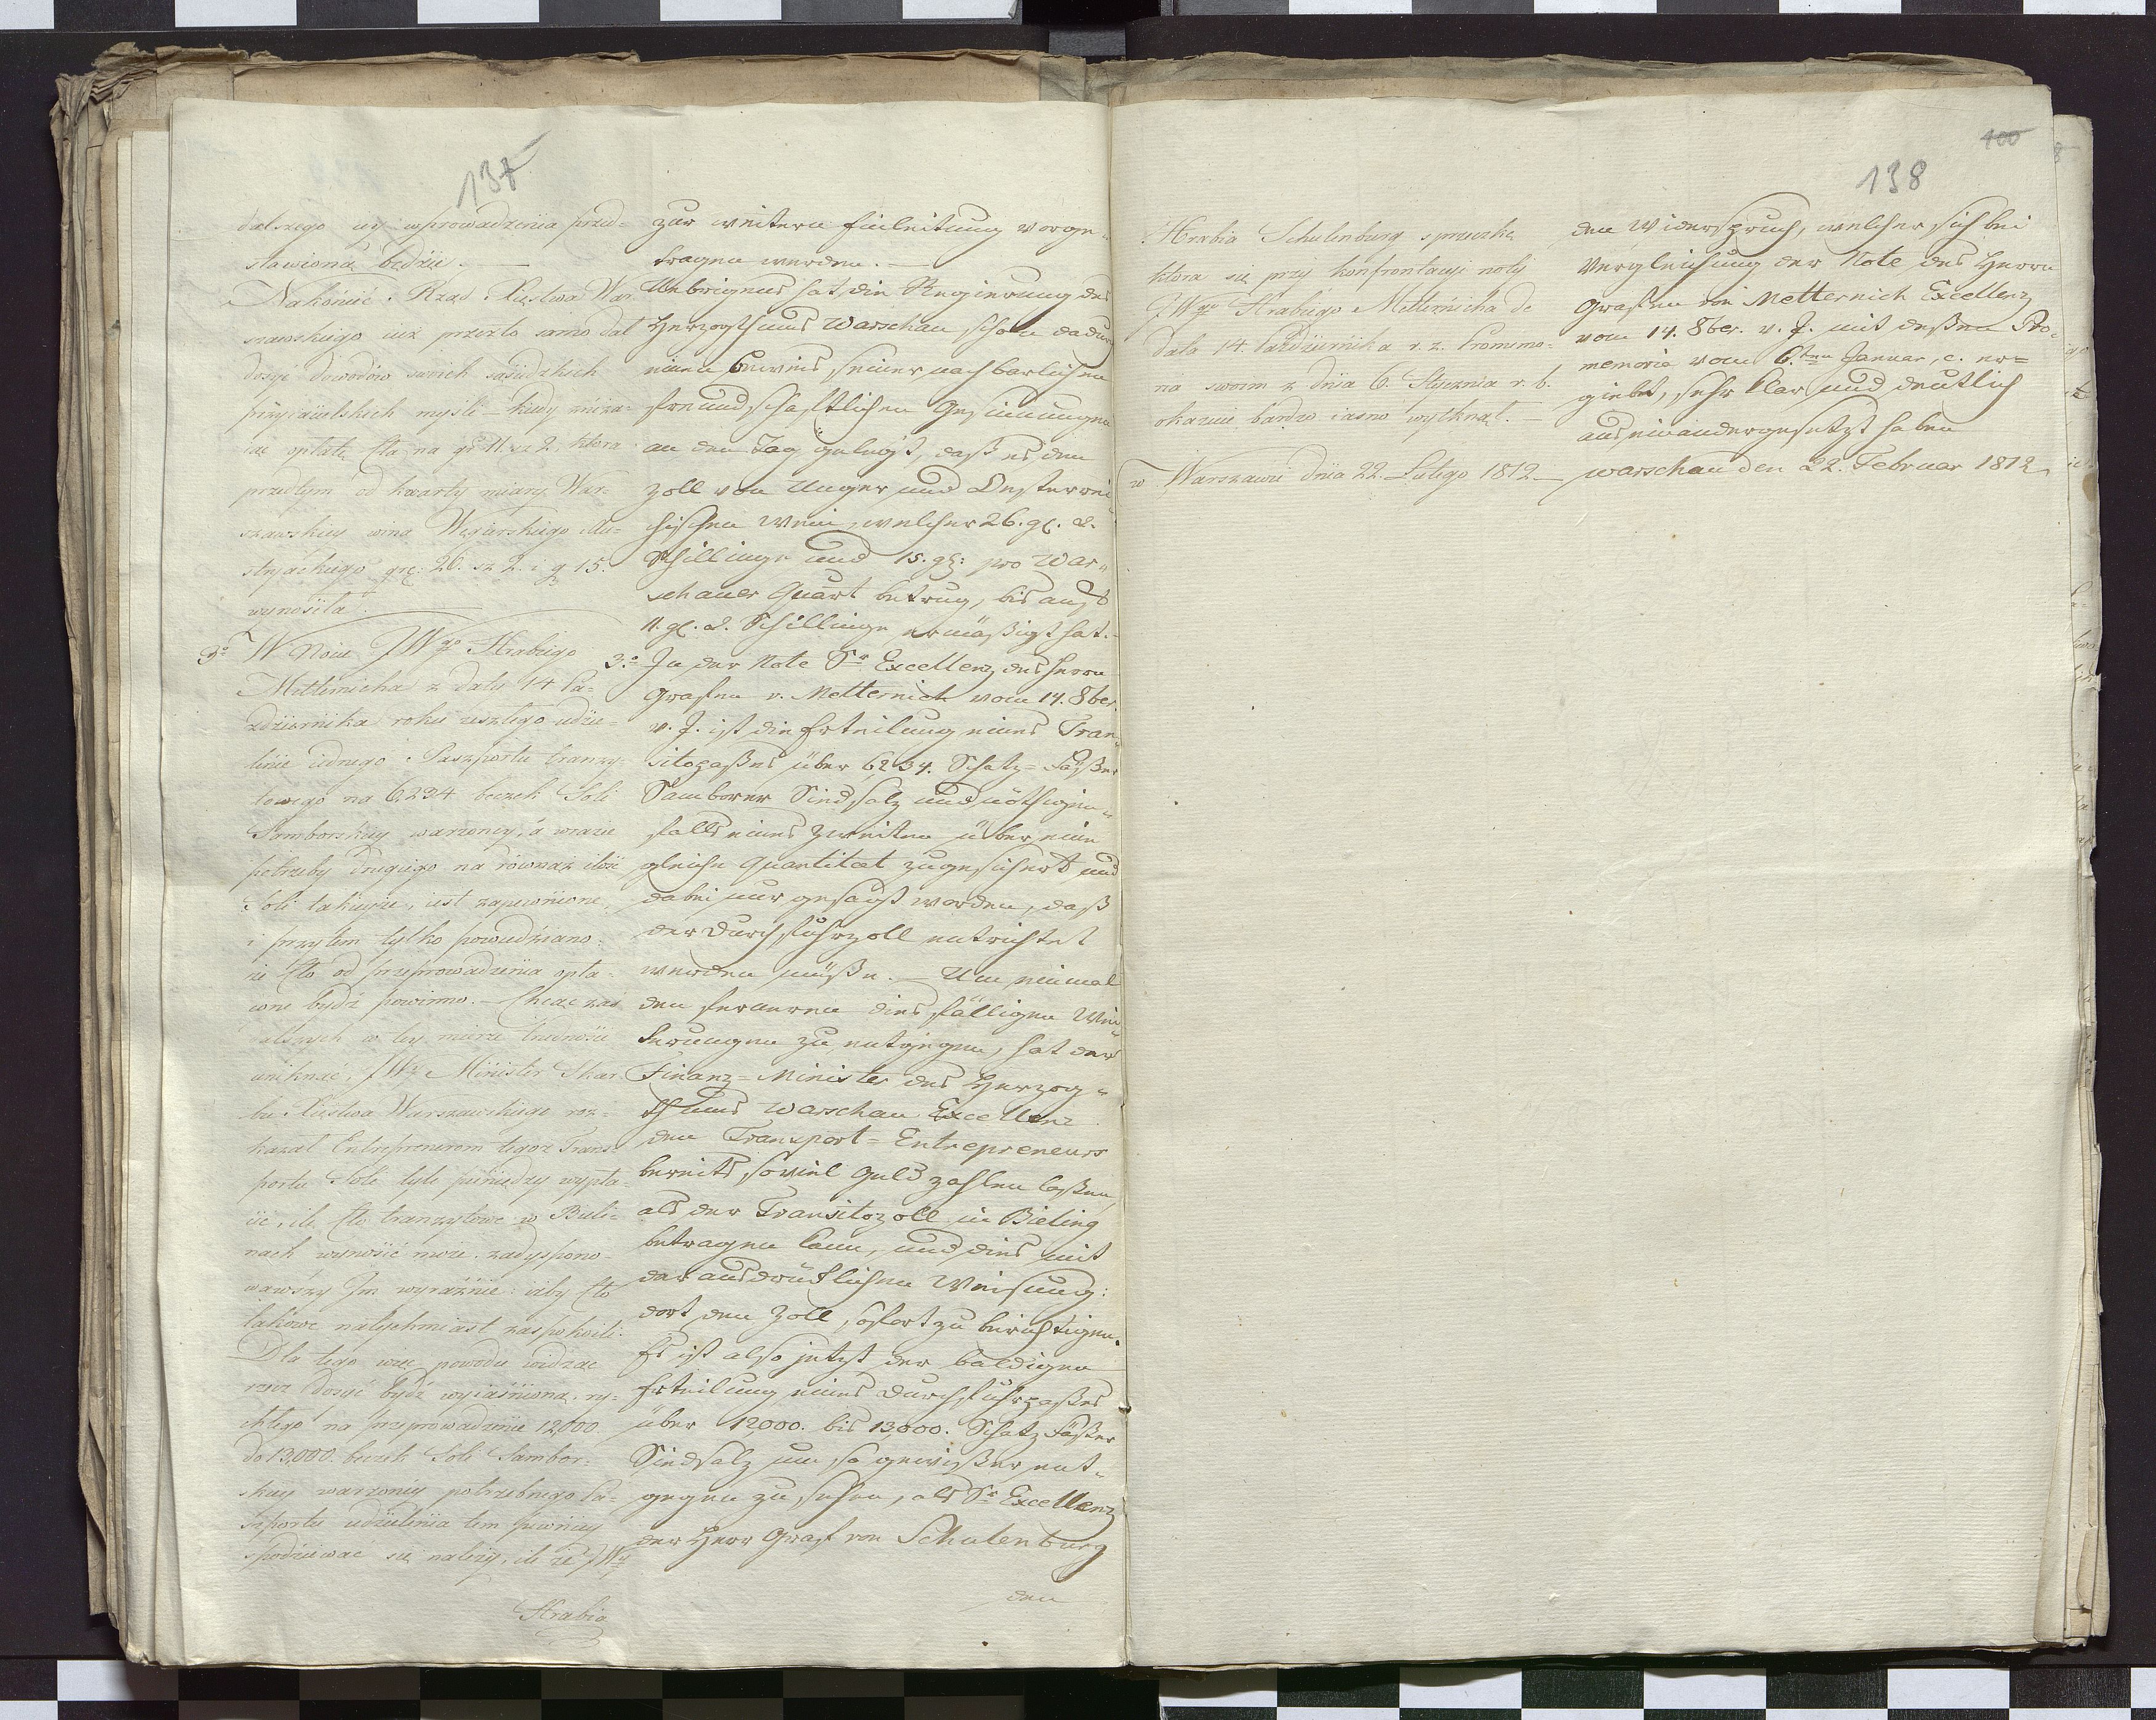 137
dalszego iey wprowadzenia przed-
stawioná będzie. —
Nakoniec Rząd Xięstwa War-
szawskiego iuż przezto samo dał
dosyć dowodów swoich sąsiedzkich
przyiacielskich myśli — kiedy zniża-
iąc opłatę cła na gr 11. sz 2. która
przedtym od kwarty miary War-
szawskiey wina Węgierskiego Au-
stryackiego grę. 26. sz 2. i g 15.
wynosiła. —
3o W Nocie JWgo Hrabiego
Metternicha z daty 14 Pa-
zdziernika roku zeszłego udzie-
lenie iednego Paszportu tranzy-
towego na 6,234 beczek Soli
Samborskiey warzoney, a wrazie
potrzeby drugiego na równąż ilość
Soli takieyże, iest zapewnione,
i przytem tylko powiedziano:
że Cło od przeprowadzenia opła-
cone bydź powinno. — Chcąc zaś
dalszych w tey mierze trudności
uniknąć, JWy Minister Skar-
bu Xięstwa Warszawskiego roz-
kazał Entreprenerom tegoż Trans-
portu Soli tyle pieniędzy wypła-
cić, ile cło tranzytowe w Bieli-
nach wynosić może. zadyspono-
wawszy Im wyraźnie: iżby Cło
takowe natychmiast zaspokoili.
Dla tego więc powodu widząc
rzecz dosyć bydź wyiaśnioną, ry-
chłego na przeprowadzenie 12,000.
do 13,000. beczek Soli Sambor-
skiey warzoney potrzebnego Pa-
szportu udzielenia tem pewniey
spodziewać się należy, ile że JWy
Hrabia
zur weitern Einleitung vorge-
tragen werden. —
Uebrigens hat die Regierung des
Herzogthums Warschau schon dadurch
einen Beweis seiner nachbarlichen
freundschaftlichen Gesinnungen
an den Tag gelegt, daß es den
Zoll von Unger und Oesterrei-
chischen Wein, welcher 26. gl. 2.
Schillinge und 15. gl: pro War-
schauer Quart betrug, bis auf
11. gl. 2. Schillinge ermäßigt hat. —
3.o In der Note Sr Excellenz des Herrn
Grafen v. Metternich vom 14. 8ber.
v. J. ist die Erteilung eines Tran-
sitopaßes über 6234. Schatz-Fäßer
Samborer Siedsalz und nöthigen-
falls eines zweiten über eine
gleiche Quantitæt zugesichert und
dabei nur gesagt worden, daß
der Durchfuhrzoll entrichtet
werden müße. — Um einmal
den ferneren diesfälligen Wei-
terungen zu entgegen, hat der
Finanz-Minister des Herzog-
thums Warschau Excellenz
den Transport-Entrepreneurs
bereits soviel Geld zahlen laßen,
als der Transitozoll in Bieling
betragen kann, und dies mit
der ausdrücklichen Weisung:
dort den Zoll sofort zu berichtigen.
Es ist also jetzt der baldigen
Erteilung eines Durchfuhrpaßes
über 12,000. bis 13,000. Schatz Fäßer
Siedsalz um so gewißer ent-
gegen zu sehen, als Sr Excellenz
der Herr Graf von Schulenburg
den
100
138
Hrabia Schulenburg sprzeczkę
która się przy konfrontacyi noty
JWgo Hrabiego Metternicha de
dato 14. Października r. z. Promemo-
na swoim z dnia 6. Stycznia r. b.
okazuie, bardzo iasno wytknął. —
w Warszawie dnia 22. Lutego 1812 —
den Widerspruch, welcher sich bei
Vergleichung der Note des Herrn
Grafen von Metternich Excellenz
vom 14. 8ber. v. J. mit deßen Pro-
memoria vom 6.ten Januar, c. er-
giebt, sehr klar und deutlich
auseinandergesetzt haben
Warschau den 22. Februar 1812